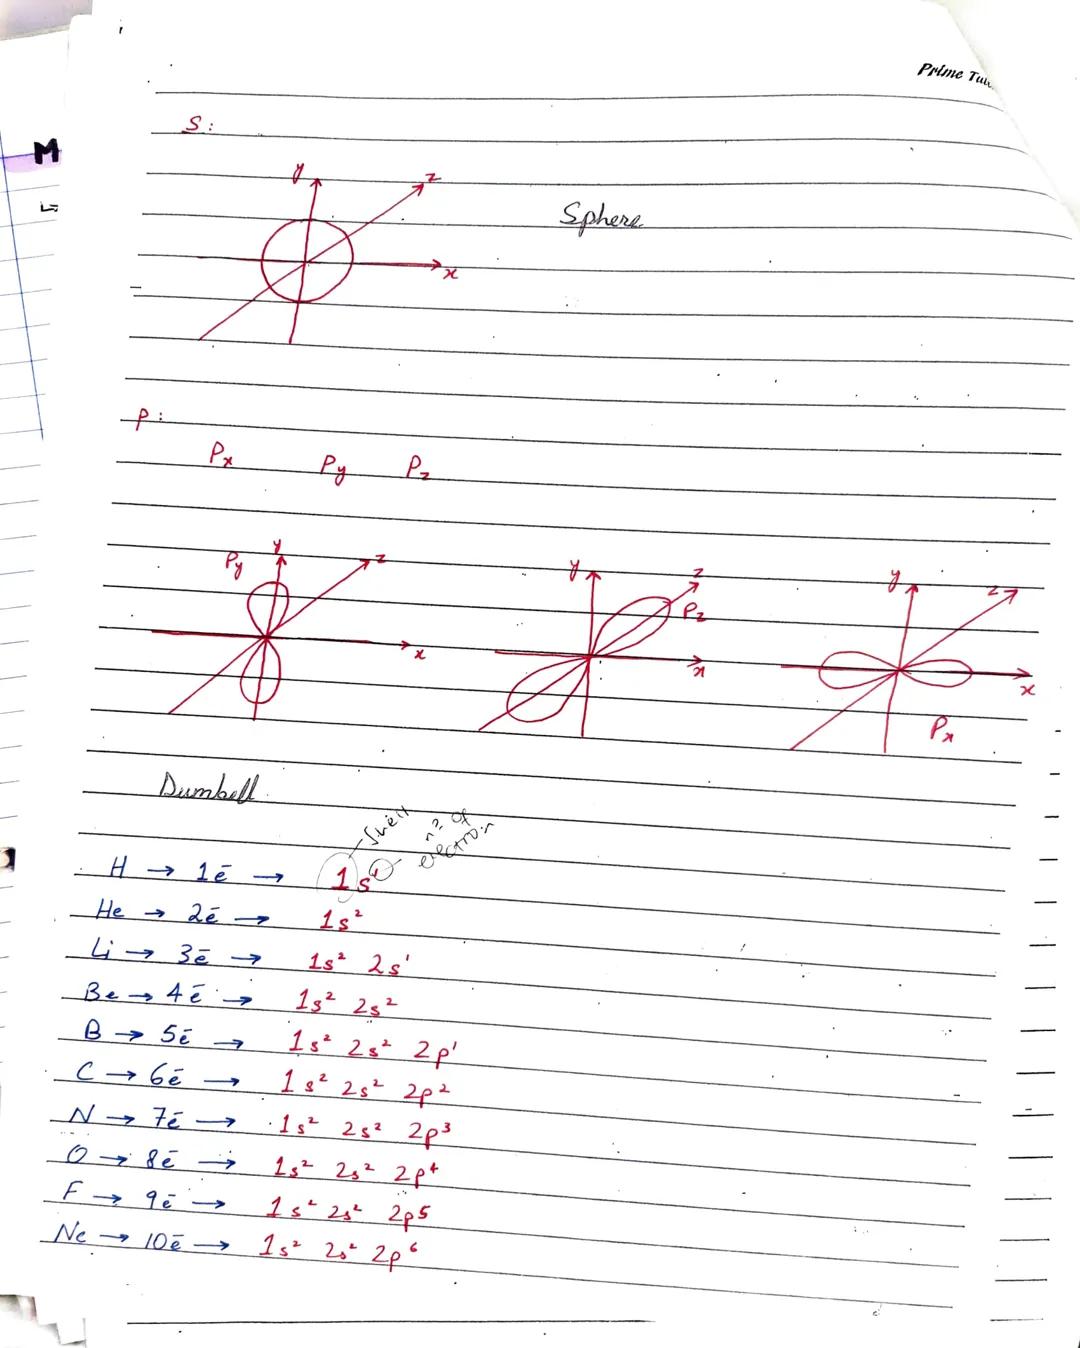 Prime
S:
y
z
Sphere
x
P:
Px Py Pz
Py y z
x
y z
Pz
x
y z
x
Px
Dumbell
Shell
nº of
electron
H → 1ē → 1s¹
He → 2ē → 1s²
Li → 3ē → 1s² 2s¹
Be → 4ē → 1s² 2s²
B → 5ē → 1s² 2s² 2p¹
C → 6ē → 1s² 2s² 2p²
N → 7ē → 1s² 2s² 2p³
O → 8ē → 1s² 2s² 2p⁴
F → 9ē → 1s² 2s² 2p5
Ne → 10ē → 1s² 2s² 2p⁶
M